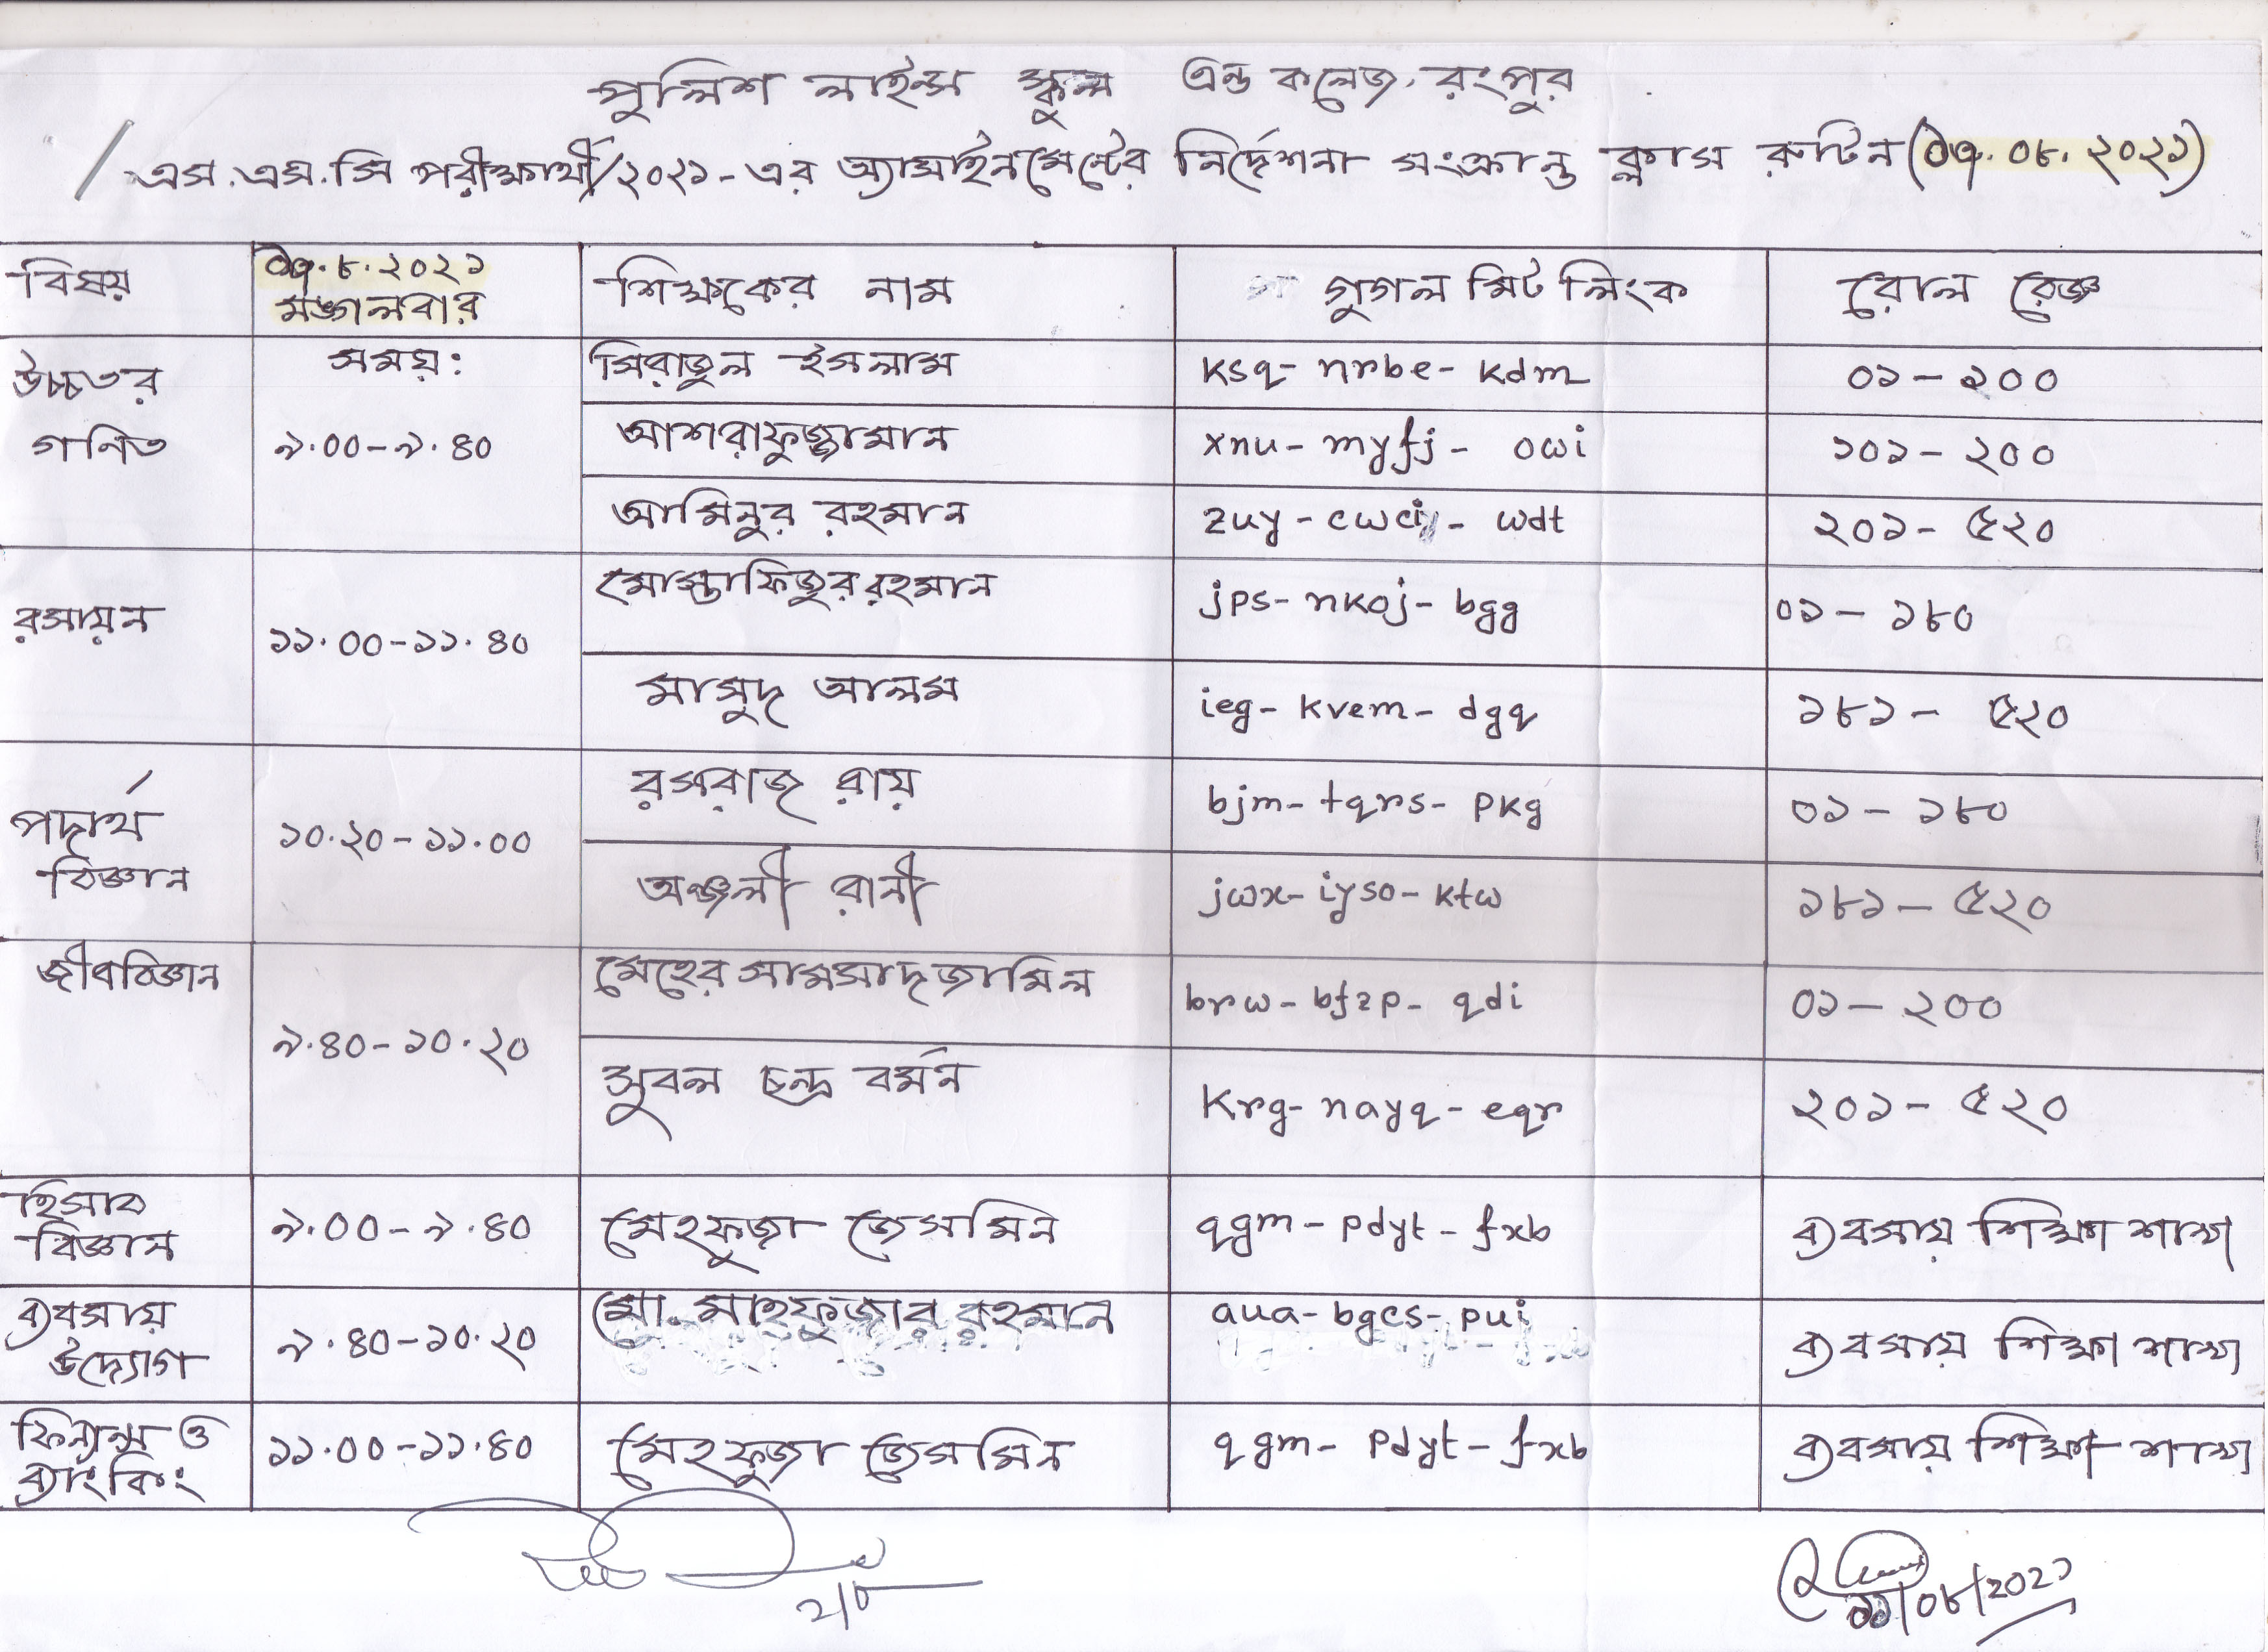 পুলিশ লাইন্স স্কুল এন্ড কলেজ, রংপুর
এস.এস.সি পরীক্ষার্থী/২০২১-এর অ্যাসাইনমেন্টের নির্দেশনা সংক্রান্ত ক্লাস রুটিন (০৭.০৮.২০২১)
বিষয় ০৭.৮.২০২১ শিক্ষকের নাম গুগল মিট লিংক রোল রেঞ্জ
মঙ্গলবার
সময়: সিরাজুল ইসলাম ksq-nrbe-kdm ০১-২০০
উচ্চতর
গনিত ৯.০০-৯.৪০ আশরাফুজ্জামান xnu-myfj-owi ১০১-২০০
আমিনুর রহমান zuy-cwci-wdt ২০১-৫২০
রসায়ন ১১.০০-১১.৪০ মোস্তাফিজুর রহমান jps-nkoj-bgg ০১-১৮০
মাসুদ আলম ieg-kvem-dgq ১৮১-৫২০
পদার্থ
বিজ্ঞান ১০.২০-১১.০০ রসরাজ রায় bjm-tqrs-pkg ০১-১৮০
অঞ্জলী রানী jwx-iyso-ktw ১৮১-৫২০
জীববিজ্ঞান ৯.৪০-১০.২০ মেহের সামসাদ জামিল brw-bfzp-qdi ০১-২০০
সুবল চন্দ্র বর্মন krg-nayq-eqr ২০১-৫২০
হিসাব
বিজ্ঞান ৯.০০-৯.৪০ মেহফুজা জেসমিন qgm-pdyt-fxb ব্যবসায় শিক্ষা শাখা
ব্যবসায়
উদ্যোগ ৯.৪০-১০.২০ মো. মাহফুজার রহমান aua-bgcs-pui ব্যবসায় শিক্ষা শাখা
ফিন্যান্স ও
ব্যাংকিং ১১.০০-১১.৪০ মেহফুজা জেসমিন qgm-pdyt-fxb ব্যবসায় শিক্ষা শাখা
/০৮/২০২১